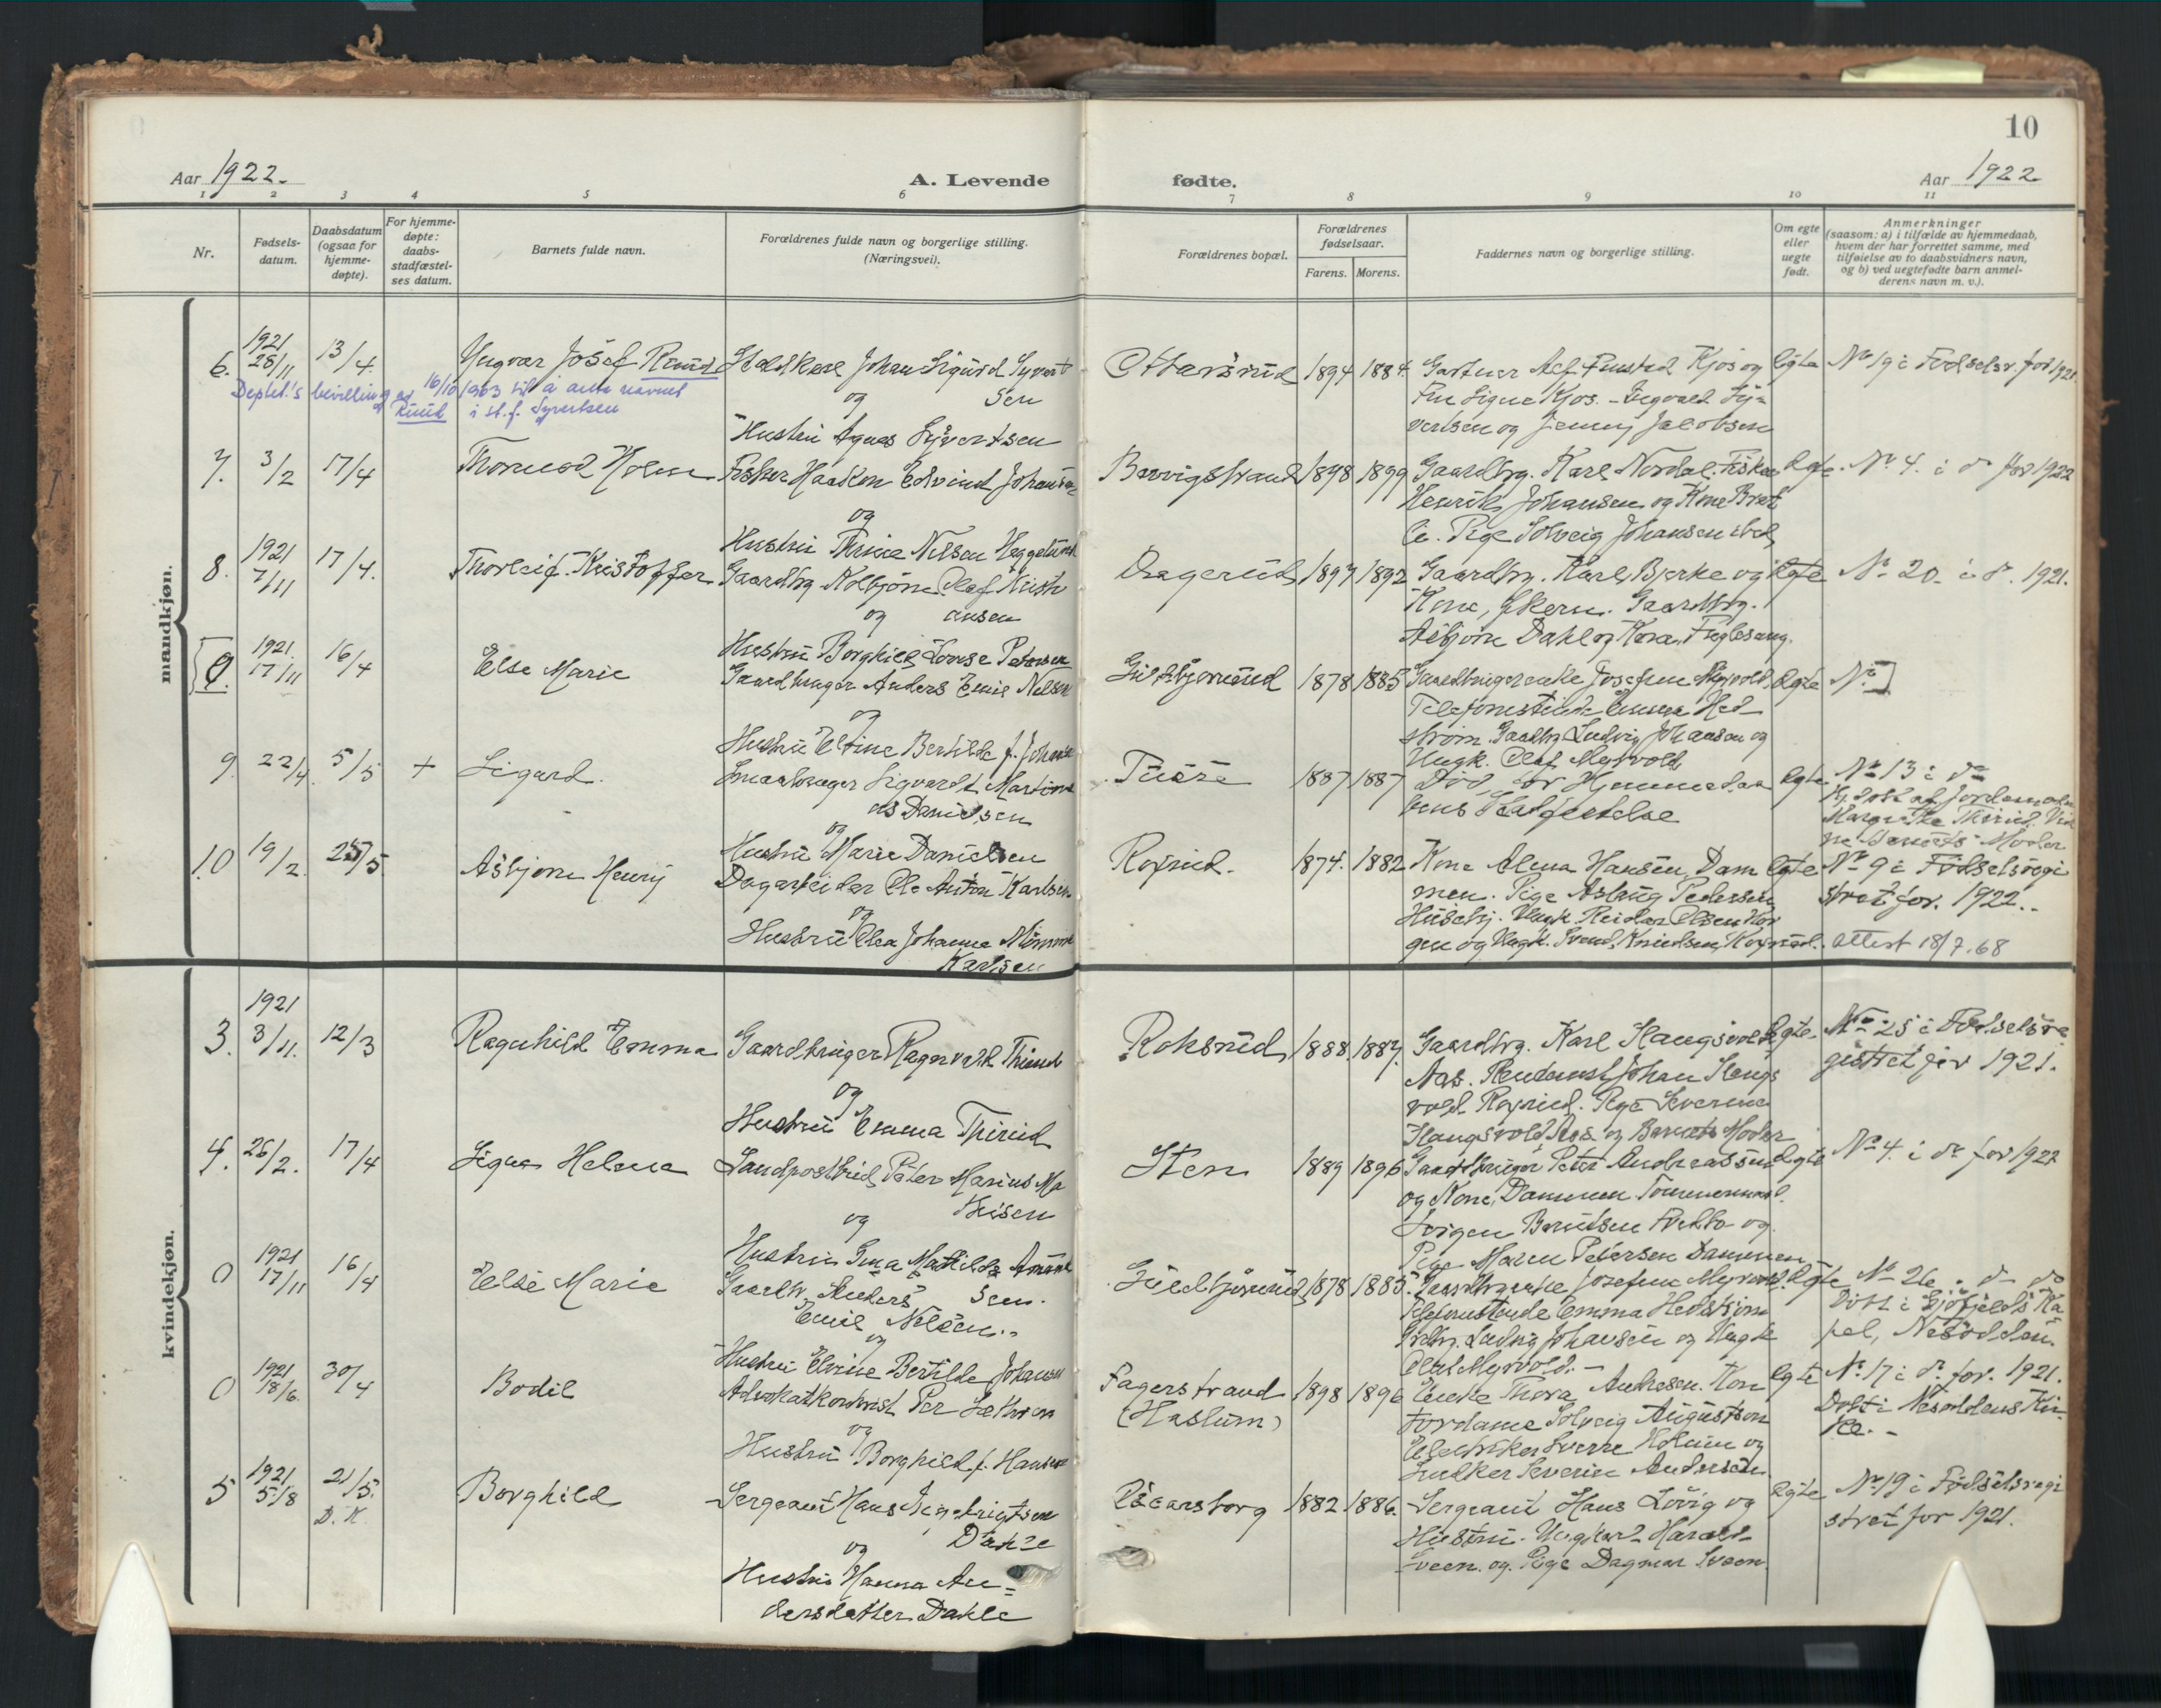 10
Aar 1922.
A. Levende
fødte.
Aar 1922
1 2 3 4 5 6 7 8 9 10 11
Nr.
Fødsels-
datum.
Daabsdatum
(ogsaa for
hjemme-
døpte).
For hjemme-
døpte:
daabs-
stadfæstel-
ses datum.
Barnets fulde navn.
Forældrenes fulde navn og borgerlige stilling.
(Næringsvei).
Forældrenes bopæl.
Forældrenes
fødselsaar.
Farens. Morens.
Faddernes navn og borgerlige stilling.
Om egte
eller
uegte
født.
Anmerkninger
(saasom: a) i tilfælde av hjemmedaab,
hvem der har forrettet samme, med
tilføielse av to daabsvidners navn,
og b) ved uegtefødte barn anmel-
derens navn m. v.).
mandkjøn.
6. 1921 28/11 13/4. Yngvar Josef Ruud
Deptet.s bevilling av 16/10 1963 til a anta navnet
Ruud i st. f. Syvertsen
Johan Sigurd Syvert
sen
og
Hustru Agnes Syvertsen
Ottersrud 1894 1884.
Gartner Alf Kjos og
Fru Signe Kjos. - Ingvald Sy-
vertsen og Jenny Jacobsen
Egte
No 19 i Fødselsr. for 1921.
7. 3/2 17/4 Thormod Holm
Fisker Haakon Edvind Johansen
og
Hustru Nilsen
1898 1899
Gaardbrg. Karl Nordal. Fisker
Henrik Johansen og Kone
Pige Solveig Johansen
Egte.
No 4. i do for 1922
8. 1921 7/11 17/4. Thorleif Kristoffer
Gaardbrg Kolbjørn Olaf Kristi
ansen
og
Hustru Borghild Lovise Petersen
Dragerud 1897 1892
Gaardbrg. Karl Bjerke og
Kone, Ekern. Gaardbrg.
Asbjørn Dahl og Kone, Fuglesang.
Egte
No 20 i do. 1921.
0. 1921. 17/11 16/4 Else Marie
Gaardbruger Anders Emil Nilsen
og
Hustru Elvine Bertilde f. Johansen
1878 1885
Gaardbrugerenke Josefine Myrvold,
Telefonistinde Emma Hed
strøm. Gaardbrg Ludvig Johansen og
Ungk. Olaf Myrvold
Egte
No
9. 22/4 5/5 + Sigurd.
Smaabruger Sigvardt Martin
Danielsen
og
Hustru Marie Danielsen
1887 1887
Død før Hjemmedaa
bens Stadfestelse
Egte
No 13 i do
Hj. døbt af Jordemoder
Margrethe Thirud. Vid
ne Barnets Moder
10 19/2. 25/5. Asbjørn Henry
Dagarbeider Ole Anton Karlsen
og
Hustru Olea Johanne
Karlsen
Roxrud. 1874. 1882
Kone Alma Hansen, Dam
men. Pige Aslaug Pedersen
Ungk. Reidar Olsen
og Ungk. Svend Knudsen, Roxrud.
Egte
No 9 i Fødselsregi
stret for 1922.
Attest 18/7.68
kvindekjøn.
3. 1921 3/11. 12/3 Ragnhild Emma
Gaardbruger Ragnvald Thirud
og
Hustru Emma Thirud
Roksrud 1888. 1887.
Gaardbrg. Karl Haugsvold
Aas. Johan Haugs
vold Roxrud. Pige Severine
Haugsvold Aas og Barnets Moder
Egte.
No 25 i Fødselsre
gistret for 1921.
4. 26/2. 17/4 Signe Helene
Landpostbud Peter Marius Ma
thisen
og
Hustru Matilde
Sten 1889 1896
Gaardbruger Peter Andreassen
og Kone, Dammen. Tømmermand
Jørgen Berntsen og
Pige Maren Petersen Dammen
Egte
No 4. i do for 1922
0 1921 17/11 16/4 Else Marie
Gaardbr. Anders
Emil Nilsen.
og
Hustru Elvine Bertilde Johansen
1878 1885.
Gaardbrgenke Josefine Myrvold.
Telefonistinde Emma Hedstrøm
Gaardbrg. Ludvig Johansen og Ungk
Olaf Myrvold. -
Egte
No 26 i do do
Døbt i Gjøfjelds Ka
pel, Nesodden.
0 1921 18/6. 30/4 Bodil
Advokat Per
og
Hustru Borghild f. Hansen
Fagerstrand
(Haslum)
1898 1896
Enke Thora Andresen. Kon
tordame Solveig Augustson
Elektriker Sverre Holm og
Snedker Severin Andersen.
Egte
No 17 i do. for. 1921.
Døbt i Nesoddens Kir
ke. -
5 1921 5/8 21/5. D. K. Borghild
Sergeant Hans Ingebrigtsen
Dahle
og
Hustru Hanna An=
dersdatter Dahle
Oscarsborg 1882 1886.
Sergeant Hans Løvig og
Hustru. Ungkarl Harald
Sveen. og Pige Dagmar Sveen.
Egte
No 19 i Fødselsregi
stret for 1921.